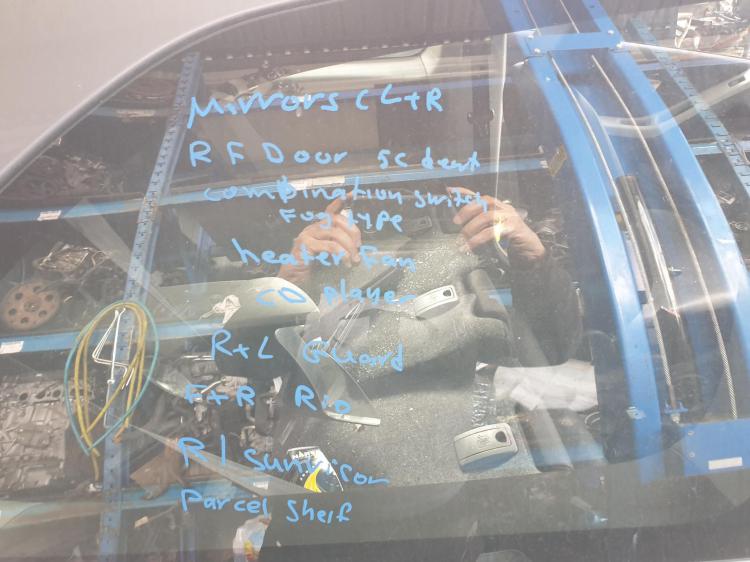 Mirrors L+R
RF Door 5c dent
combination switch
Fog type
heater Fan
CD player
R+L Guard
F+R Rio
R/ sunvisor
Parcel Shelf